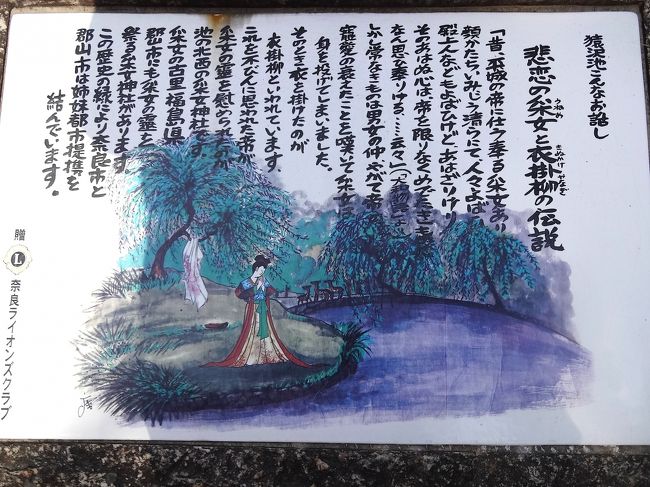 猿沢池こんなお話し
悲恋の采女と衣掛柳の伝説
うねめ
きぬかけ
やなぎ
「昔、平城の帝に仕う奉る采女あり
顔かたちいみじう清らにて、人々よばい
殿上人などもよばひけど、あはざりけり
そのあはぬ心は、帝を限りなくめでたきものに
なん思ひ奉りける……云々」(大和物語)
しかし常なきものは男女の仲、やがて帝の
寵愛の衰えたことを嘆いて采女は
身を投げてしまいました。
そのとき衣を掛けたのが
衣掛柳といわれています。
これを不びんに思われた帝が
采女の霊を慰められたのが
池の北西の采女神社です。
采女の古里・福島県
郡山市にも采女の霊を
祭る采女神社があります。
この歴史の縁により奈良市と
郡山市は姉妹都市提携を
結んでいます。
贈 L 奈良ライオンズクラブ